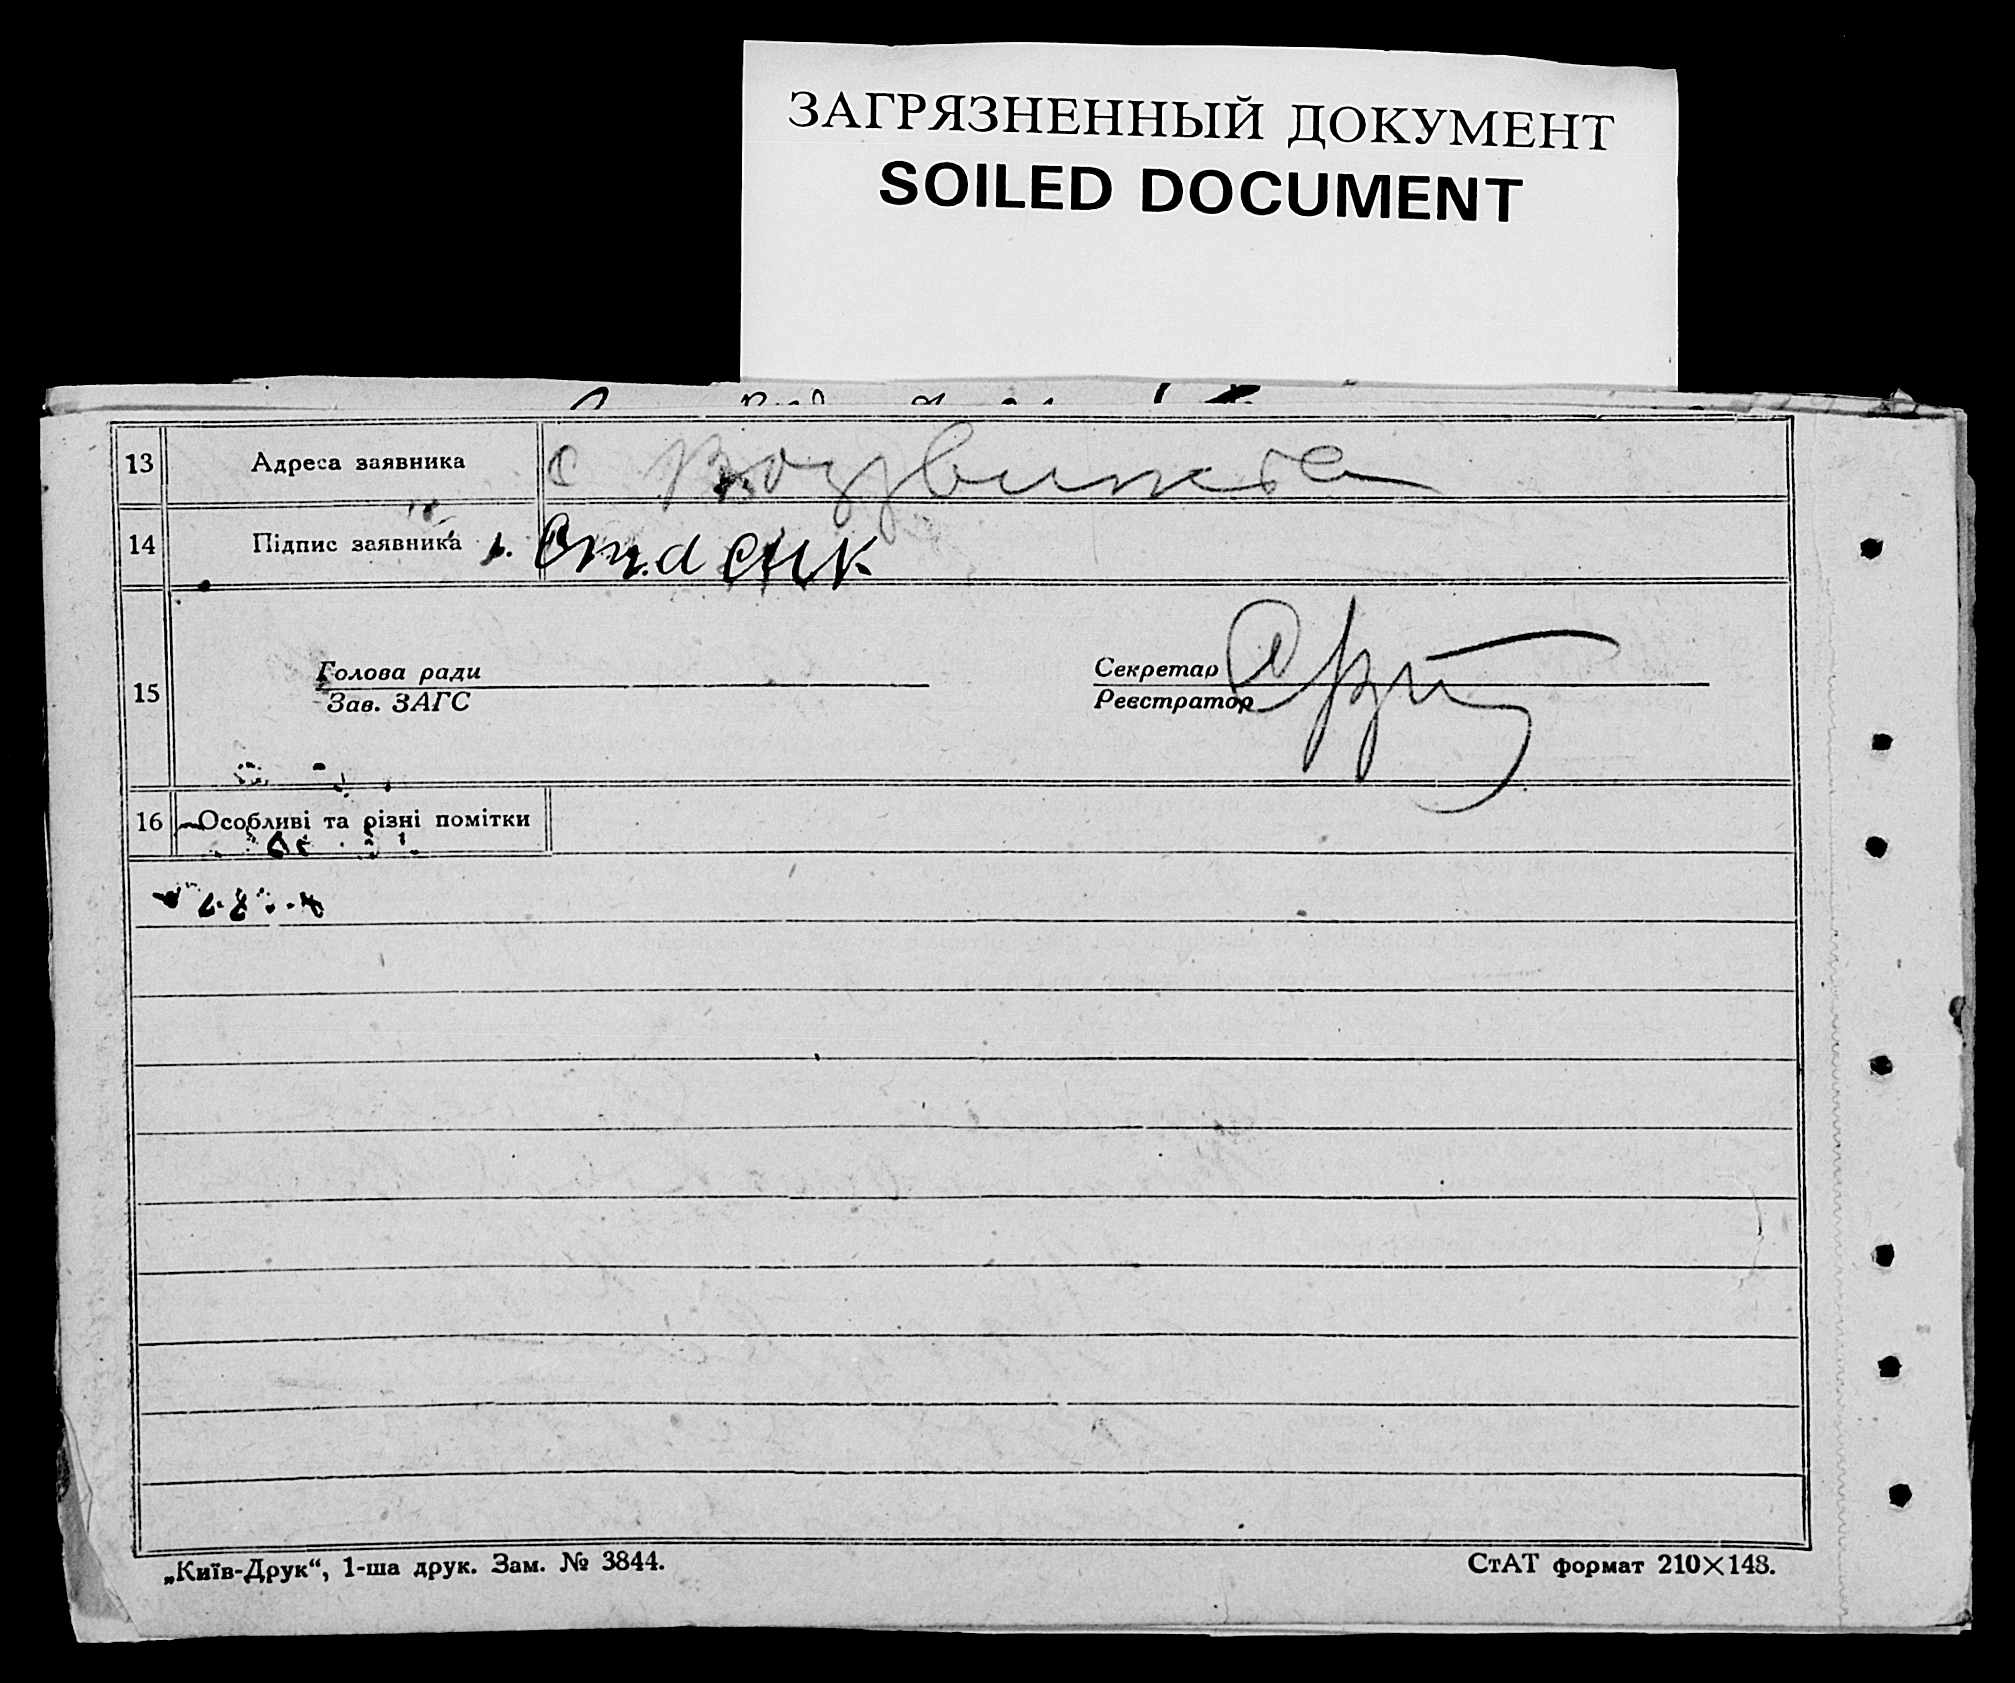 ЗАГРЯЗНЕННЫЙ ДОКУМЕНТ
SOILED DOCUMENT
13 Адреса заявника с Воздвижка
14 Підпис заявника Стасик
15 Голова ради Секретар
Зав. ЗАГС Реєстратор
16 Особливі та різні помітки
„Київ-Друк“, 1-ша друк. Зам. № 3844. СтАТ формат 210×148.